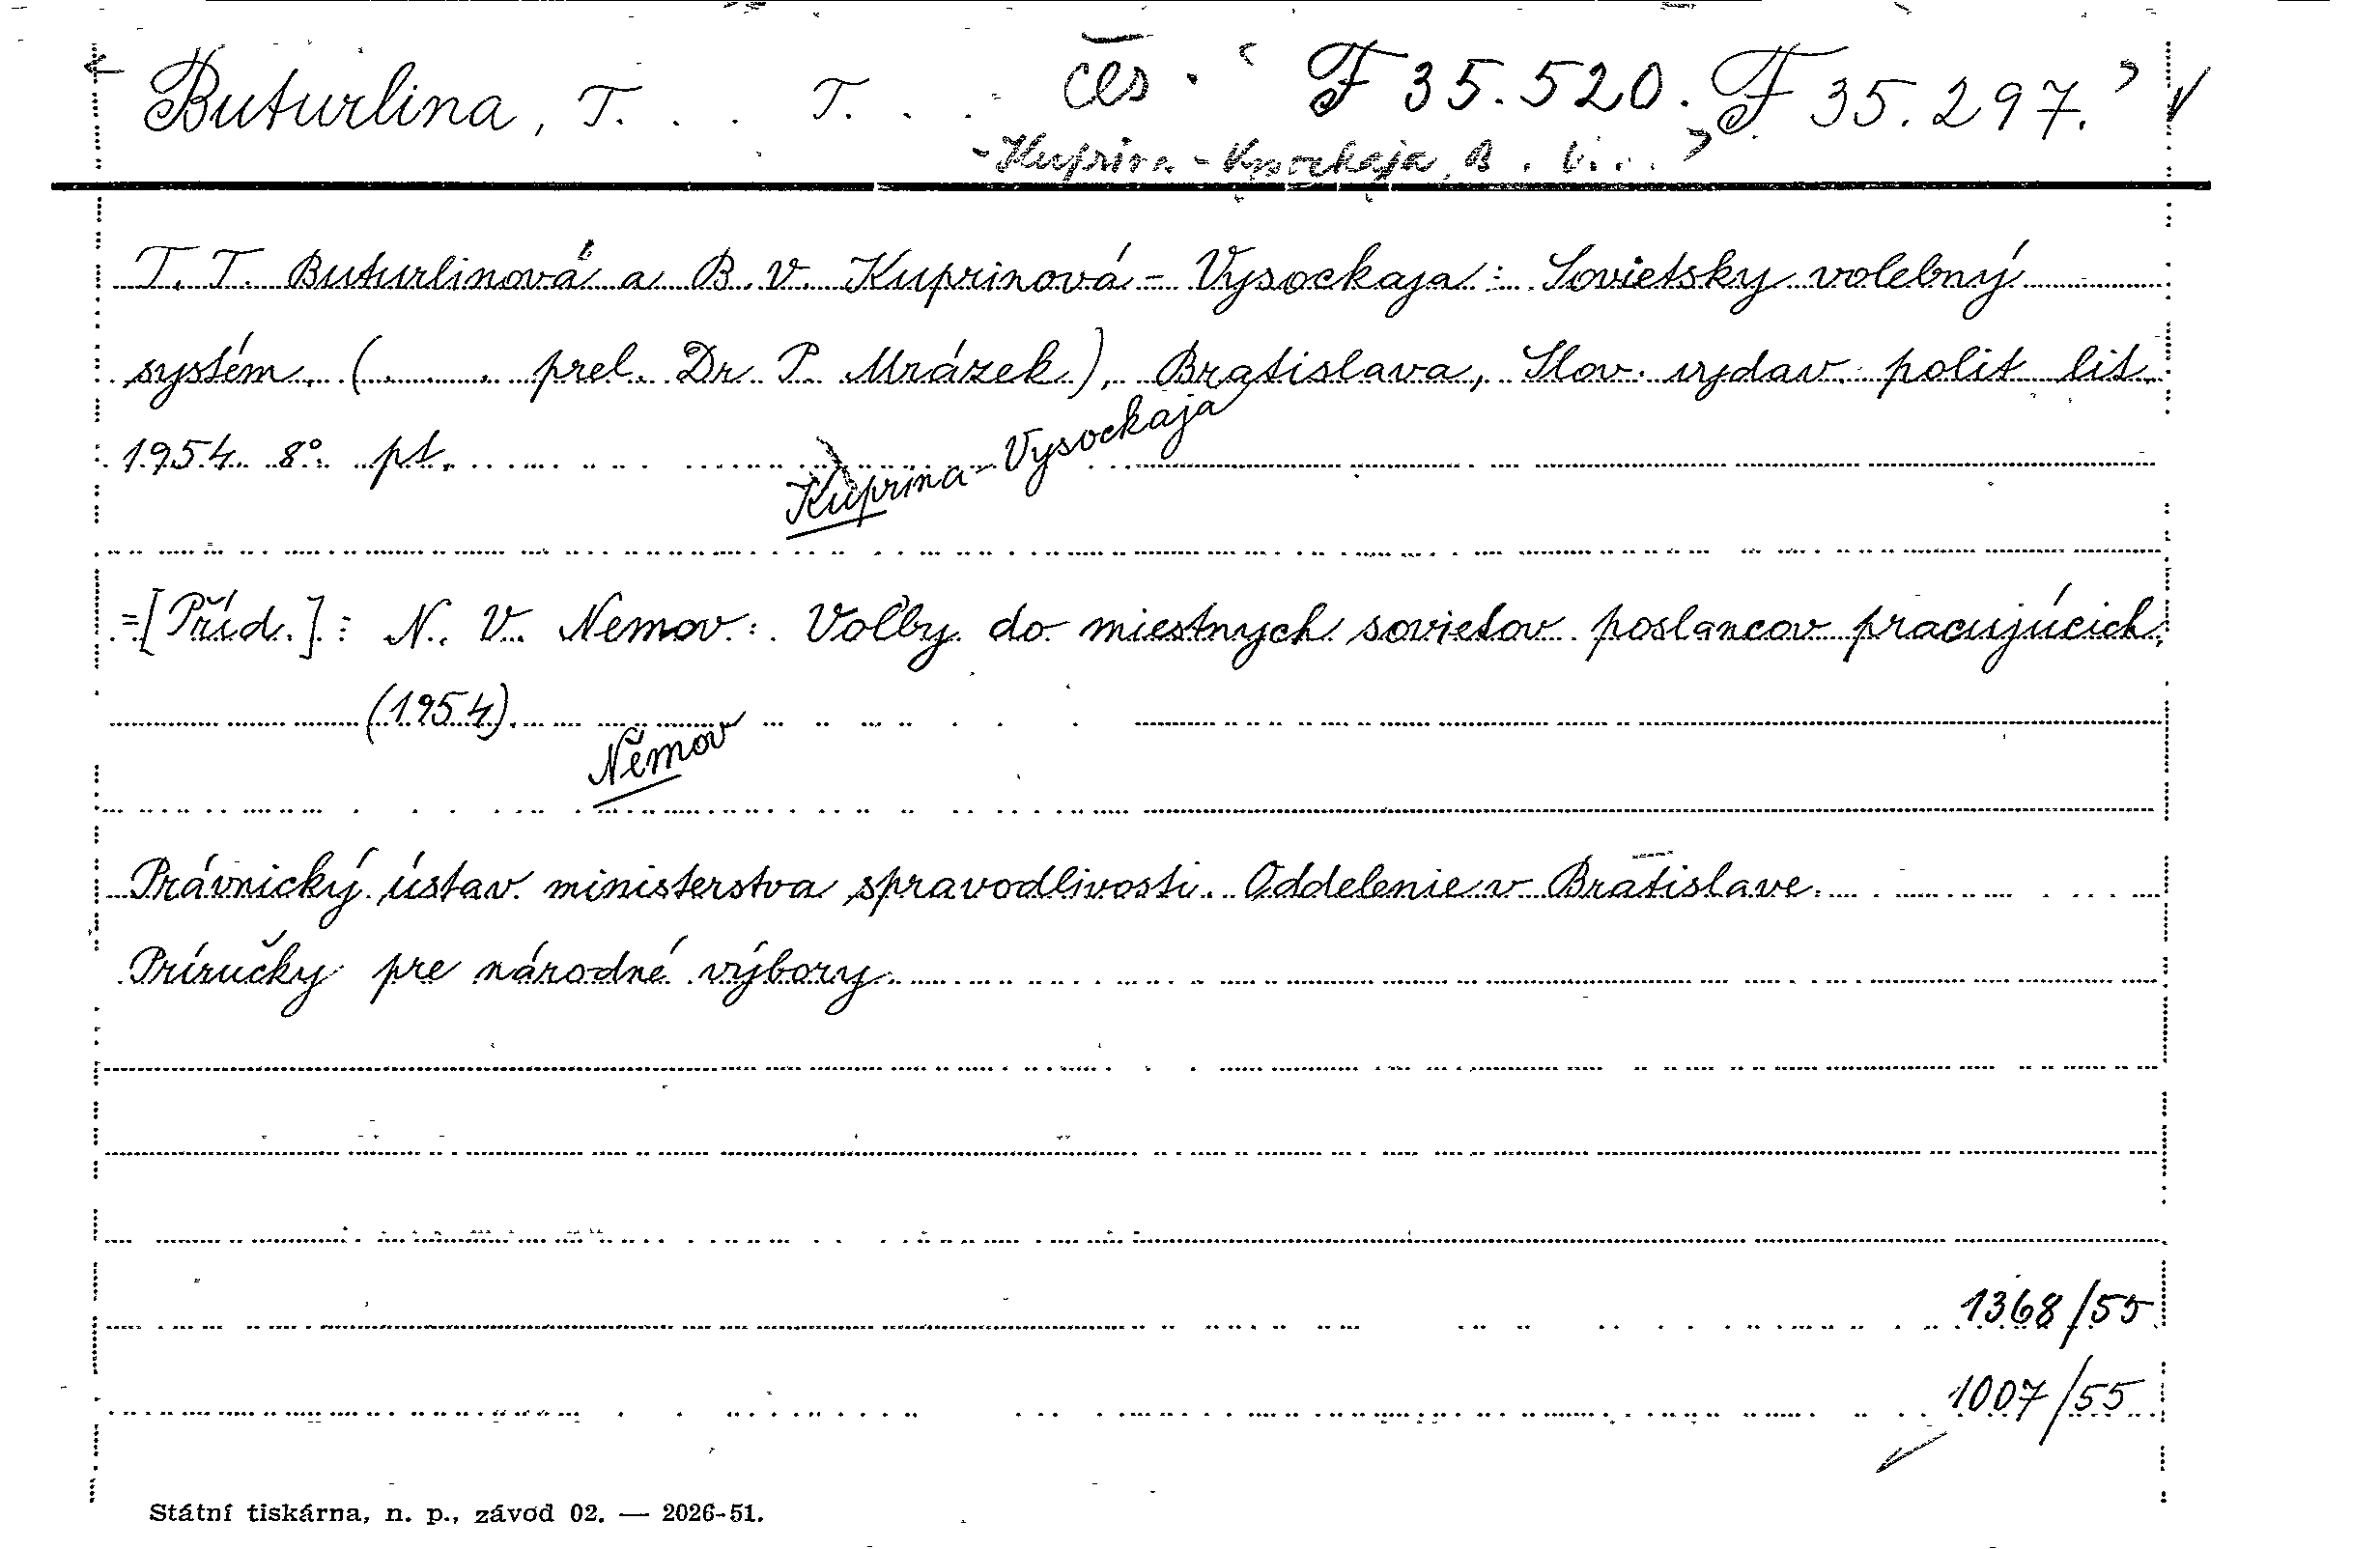 Buturlina, T. . . T. . . čes. F 35.520. F 35.297.
- Kuprina - Vysockaja, B. V. . .
T. T. Buturlinová a B. V. Kuprinová - Vysockaja: Sovietsky volebný
systém. (... prel. Dr P. Mrázek), Bratislava, Slov. vydav. polit lit.
1954. 8°. pt.
Kuprina - Vysockaja
= [Příd.]: N. V. Nemov: Voľby do miestnych sovietov poslancov pracujúcich,
(1954).
Němov
Právnický ústav ministerstva spravodlivosti. Oddelenie v Bratislave.
Príručky pre národné výbory.
1368/55
1007/55
Státní tiskárna, n. p., závod 02. — 2026-51.